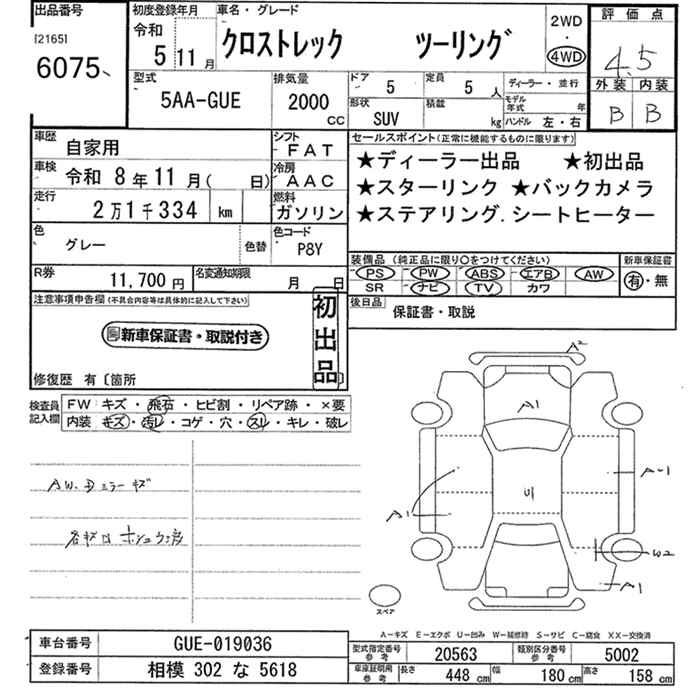 出品番号
[2165]
6075
初度登録年月
令和
5 11 月
車名・グレード
クロストレック ツーリング
2WD
・
4WD
評価点
4.5
外装 内装
B B
型式
5AA-GUE
排気量
2000
CC
ドア
5
定員
5 人
形状
SUV
積載
kg
ディーラー・並行
モデル年式 年
ハンドル 左・右
車歴
自家用
シフト
FAT
車検
令和 8年 11月( 日)
冷房
AAC
走行
2万1千334 km
燃料
ガソリン
色
グレー
色替
色コード
P8Y
R券
11,700円
名変通知期限
月 日
セールスポイント(正常に機能するものに限ります)
★ディーラー出品 ★初出品
★スターリンク ★バックカメラ
★ステアリング.シートヒーター
装備品(純正品に限り○をつけてください)
PS PW ABS エアB AW
SR ナビ TV カワ
新車保証書
有・無
後日品
保証書・取説
注意事項申告欄(不具合内容等は具体的に記入して下さい)
新車保証書・取説付き
初出品
修復歴 有〔箇所 〕
検査員記入欄
FW キズ・飛石・ヒビ割・リペア跡・×要
内装 キズ・汚レ・コゲ・穴・スレ・キレ・破レ
AW.Dミラーキズ
A2
A1
A-1
A1
U1
W2
A1
スペア
A-キズ E-エクボ U-凹み W-補修跡 S-サビ C-腐食 XX-交換済
車台番号
GUE-019036
登録番号
相模 302 な 5618
型式指定番号
参考
20563
類別区分番号
参考
5002
車庫証明用
参考
長さ 448 cm 幅 180 cm 高さ 158 cm